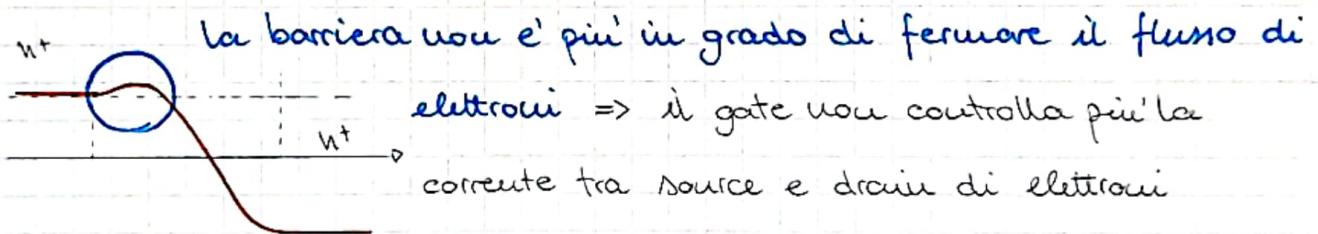 n+
la barriera non e' piu' in grado di fermare il flusso di
elettroni => il gate non controlla piu' la
n+
corrente tra source e drain di elettroni